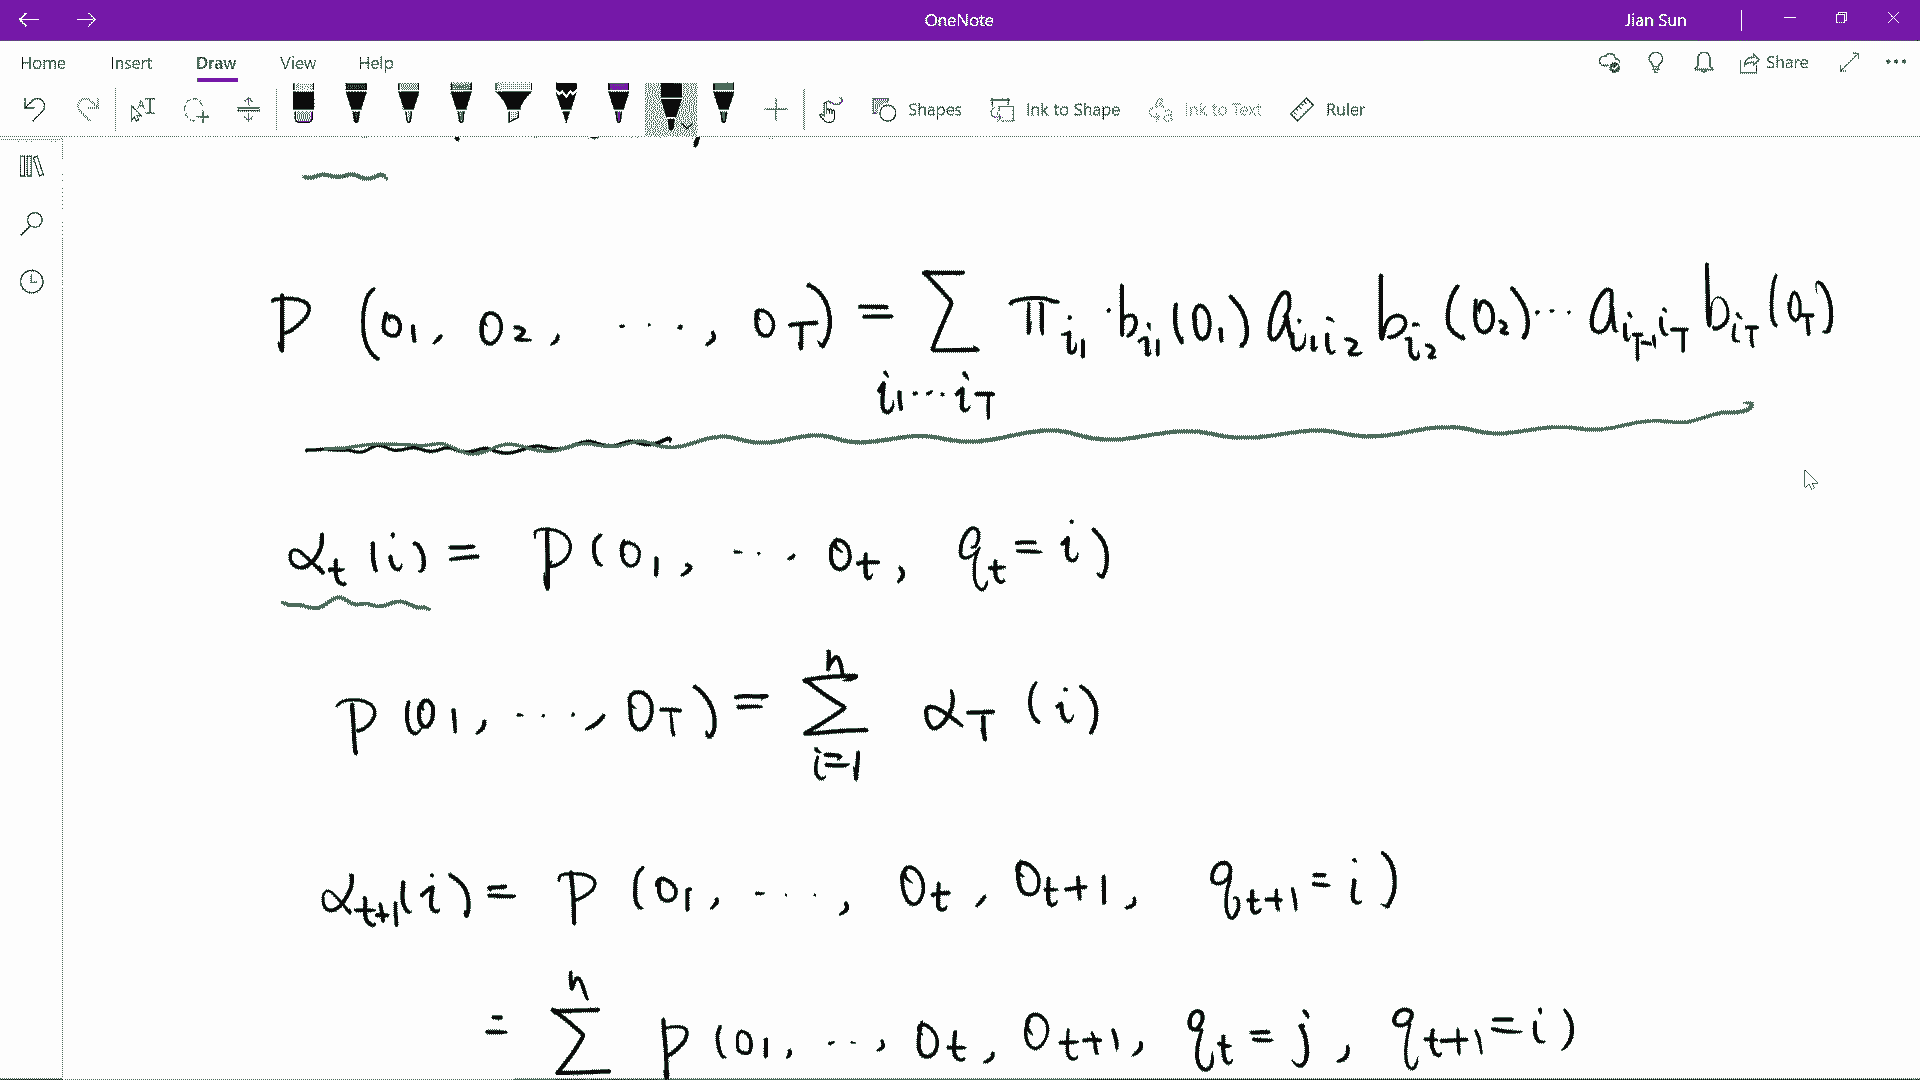 OneNote
Jian Sun
Home Insert Draw View Help
Share
Shapes Ink to Shape Ink to Text Ruler
P (O₁, O₂, ⋯, O_T) = ∑_{i₁⋯i_T} π_{i₁} · b_{i₁}(O₁) a_{i₁i₂} b_{i₂}(O₂) ⋯ a_{i_{T-1}i_T} b_{i_T}(O_T)
α_t(i) = P(O₁, ⋯ O_t, q_t = i)
P(O₁, ⋯, O_T) = ∑_{i=1}^{n} α_T(i)
α_{t+1}(i) = P (O₁, ⋯, O_t, O_{t+1}, q_{t+1} = i)
= ∑^{n} P(O₁, ⋯, O_t, O_{t+1}, q_t = j, q_{t+1} = i)